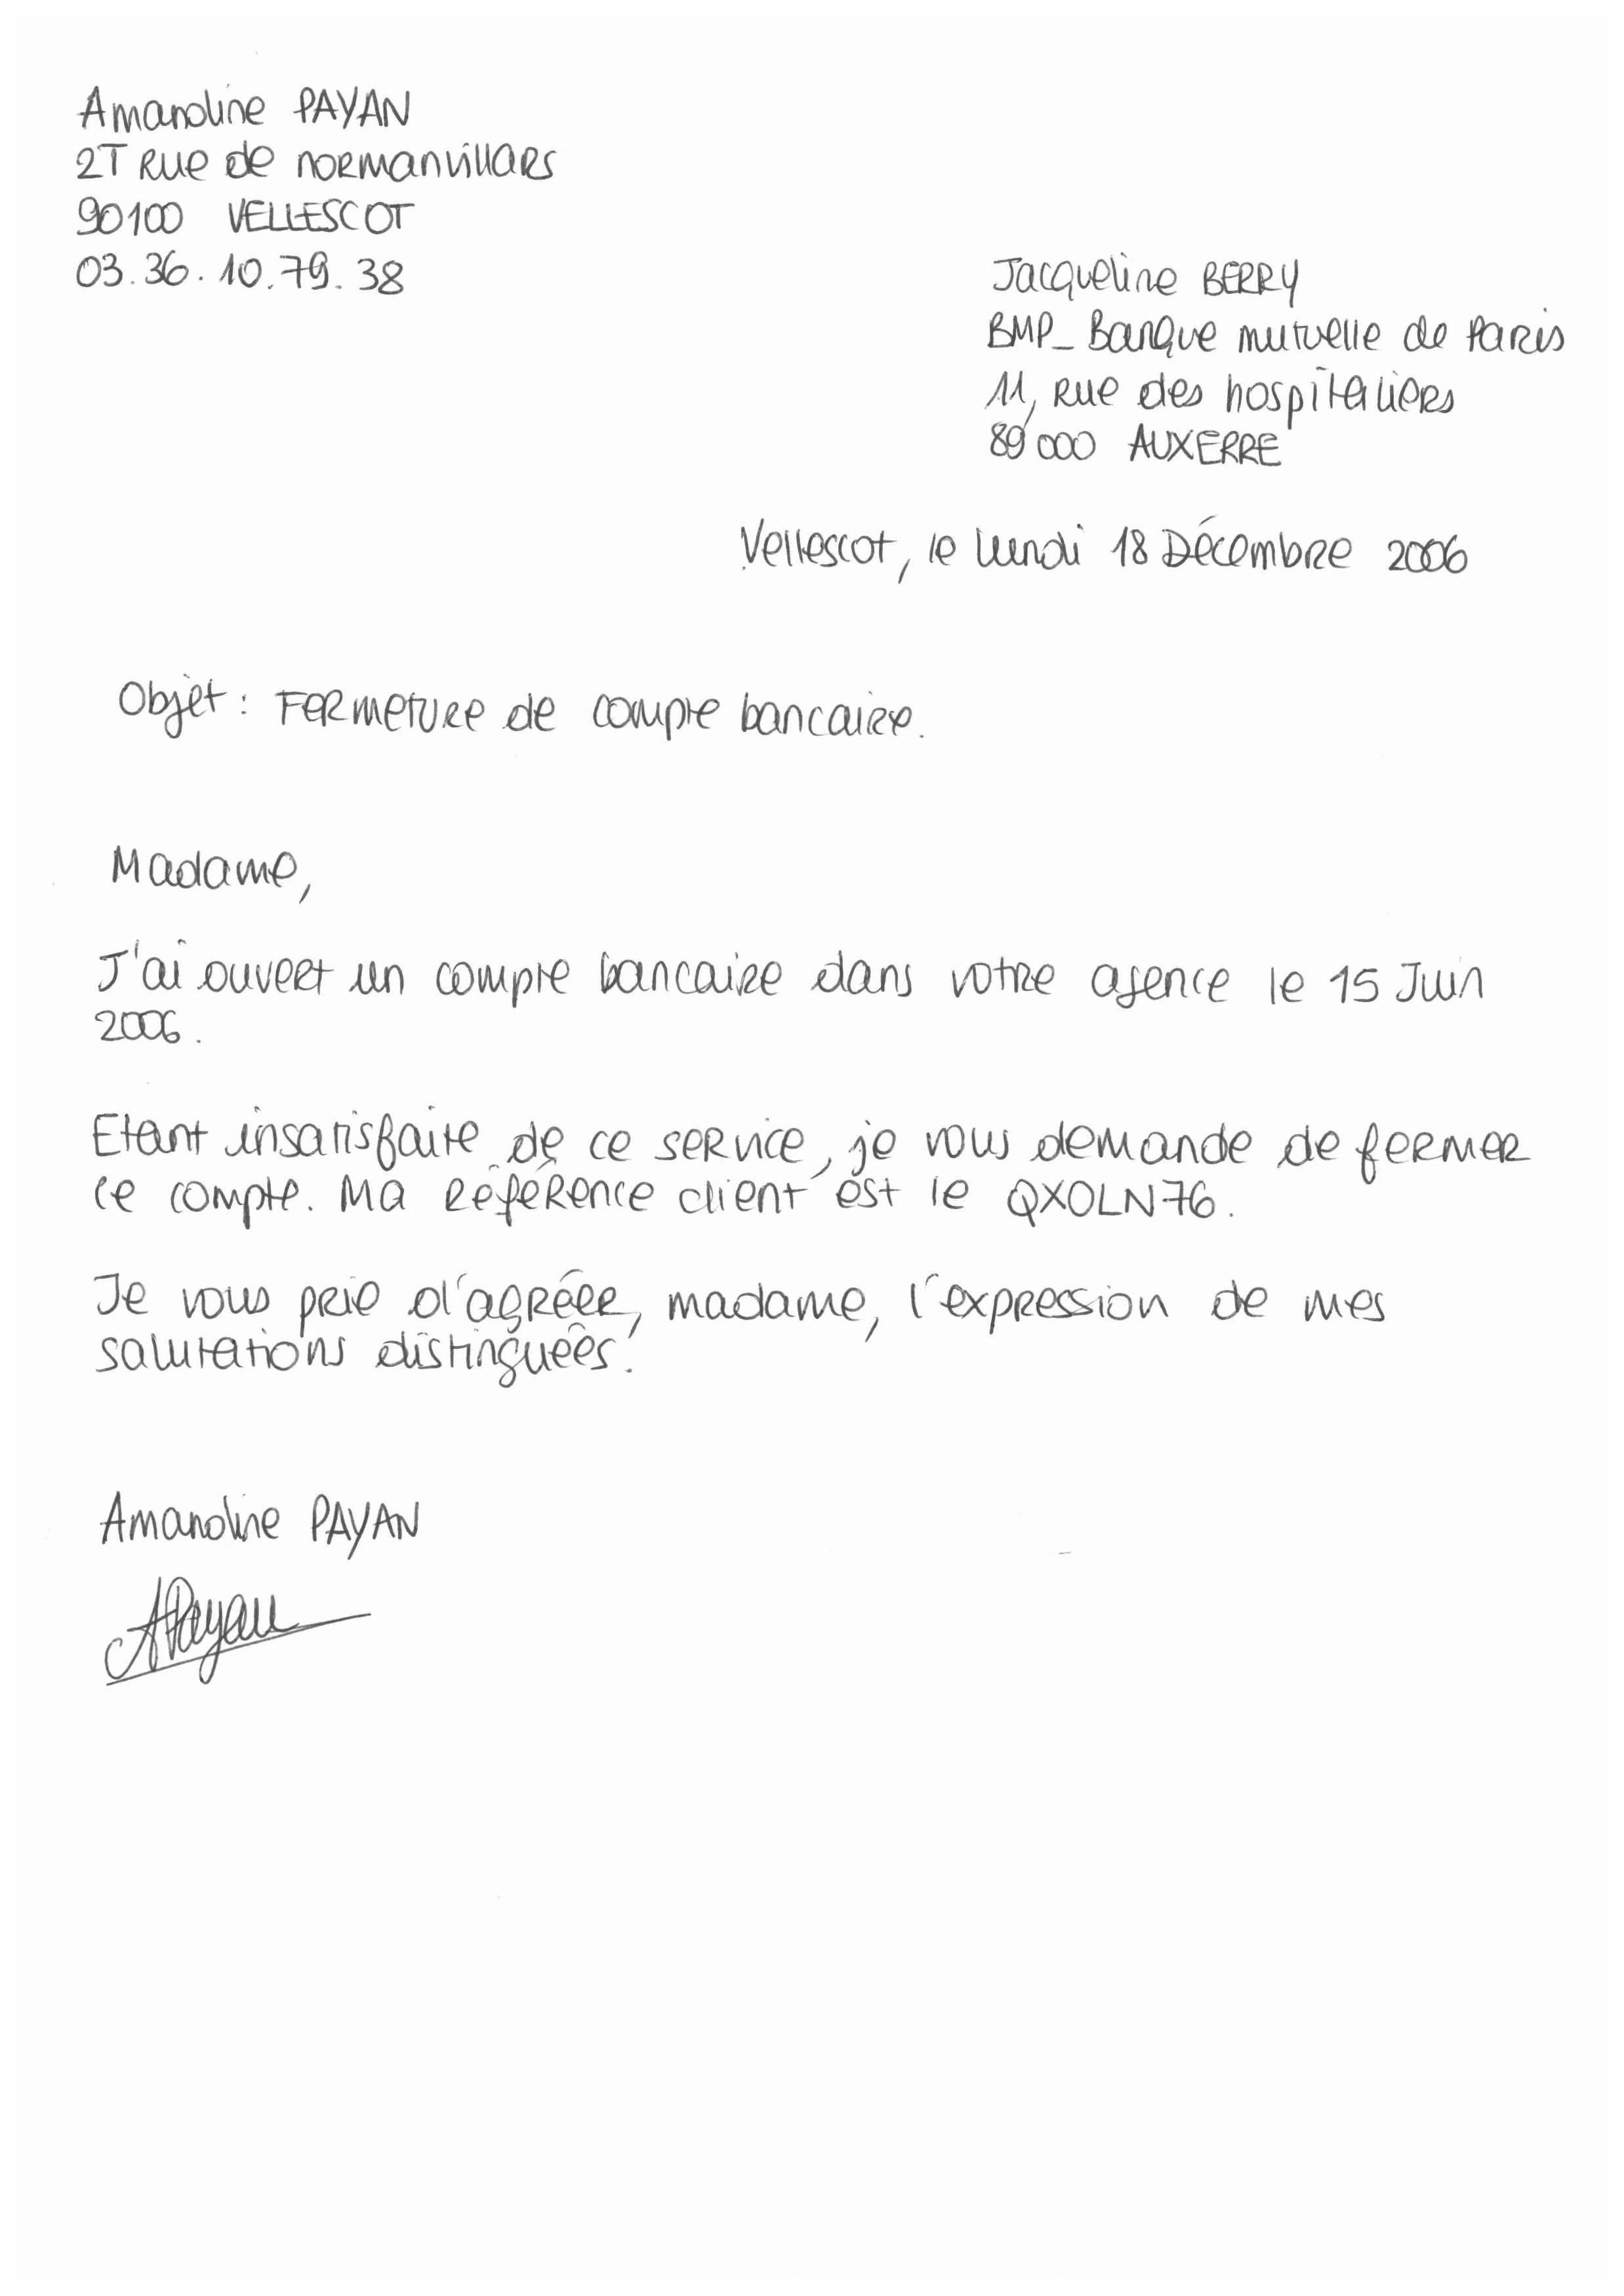 Amandine PAYAN
2T Rue de normanvillars
90100 VELLESCOT
03.36.10.79.38
Jacqueline BERRY
BMP_ Banque mutuelle de Paris
11, Rue des hospitaliers
89000 AUXERRE
Vellescot, le lundi 18 Décembre 2006
Objet : Fermeture de compte bancaire.
Madame,
J'ai ouvert un compte bancaire dans votre agence le 15 Juin
2006.
Etant insatisfaite de ce service, je vous demande de fermer
ce compte. Ma référence client est le QXOLN76.
Je vous prie d'agréer, madame, l'expression de mes
salutations distinguées.
Amandine PAYAN
APayan